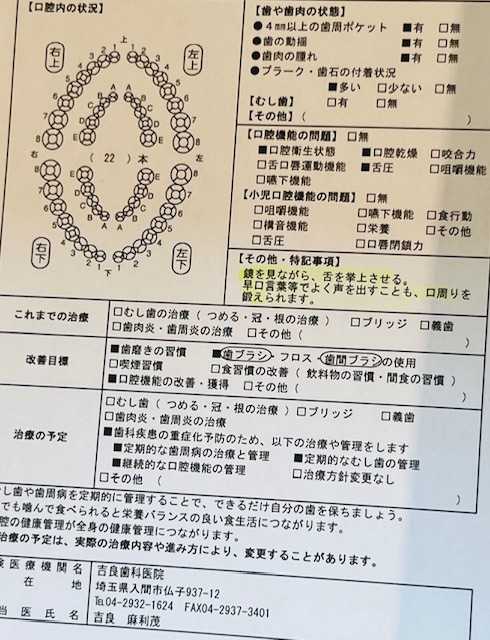 【口腔内の状況】
右上
左上
8 7 6 5 4 3 2 1 上 1 2 3 4 5 6 7 8
E D C B A A B C D E
右 ( 22 ) 本 左
E D C B A A B C D E
8 7 6 5 4 3 2 1 下 1 2 3 4 5 6 7 8
右下
左下
【歯や歯肉の状態】
●4mm以上の歯周ポケット ■有 □無
●歯の動揺 ■有 □無
●歯肉の腫れ ■有 □無
●プラーク・歯石の付着状況
■多い □少ない □無
【むし歯】 □有 □無
【その他】( )
【口腔機能の問題】□無
■口腔衛生状態 ■口腔乾燥 □咬合力
□舌口唇運動機能 ■舌圧 □咀嚼機能
□嚥下機能
【小児口腔機能の問題】 □無
□咀嚼機能 □嚥下機能 □食行動
□構音機能 □栄養 □その他
□舌圧 □口唇閉鎖力
【その他・特記事項】
鏡を見ながら、舌を挙上させる。
早口言葉等でよく声を出すことも、口周りを
鍛えられます。
これまでの治療 □むし歯の治療 ( つめる・冠・根の治療 ) □ブリッジ □義歯
□歯肉炎・歯周炎の治療 □その他 ( )
改善目標 ■歯磨きの習慣 ■歯ブラシ・フロス・歯間ブラシの使用
□喫煙習慣 □食習慣の改善 ( 飲料物の習慣・間食の習慣 )
■口腔機能の改善・獲得 □その他 ( )
治療の予定 □むし歯 ( つめる・冠・根の治療 ) □ブリッジ □義歯
□歯肉炎・歯周炎の治療
■歯科疾患の重症化予防のため、以下の治療や管理をします
■定期的な歯周病の治療と管理 ■定期的なむし歯の管理
■継続的な口腔機能の管理 □治療方針変更なし
□その他 ( )
し歯や歯周病を定期的に管理することで、できるだけ自分の歯を保ちましょう。
でも噛んで食べられると栄養バランスの良い食生活につながります。
腔の健康管理が全身の健康管理につながります。
治療の予定は、実際の治療内容や進み方により、変更することがあります。
医療機関名 吉良歯科医院
在地 埼玉県入間市仏子937-12
TEL04-2932-1624 FAX04-2937-3401
当医氏名 吉良 麻利茂